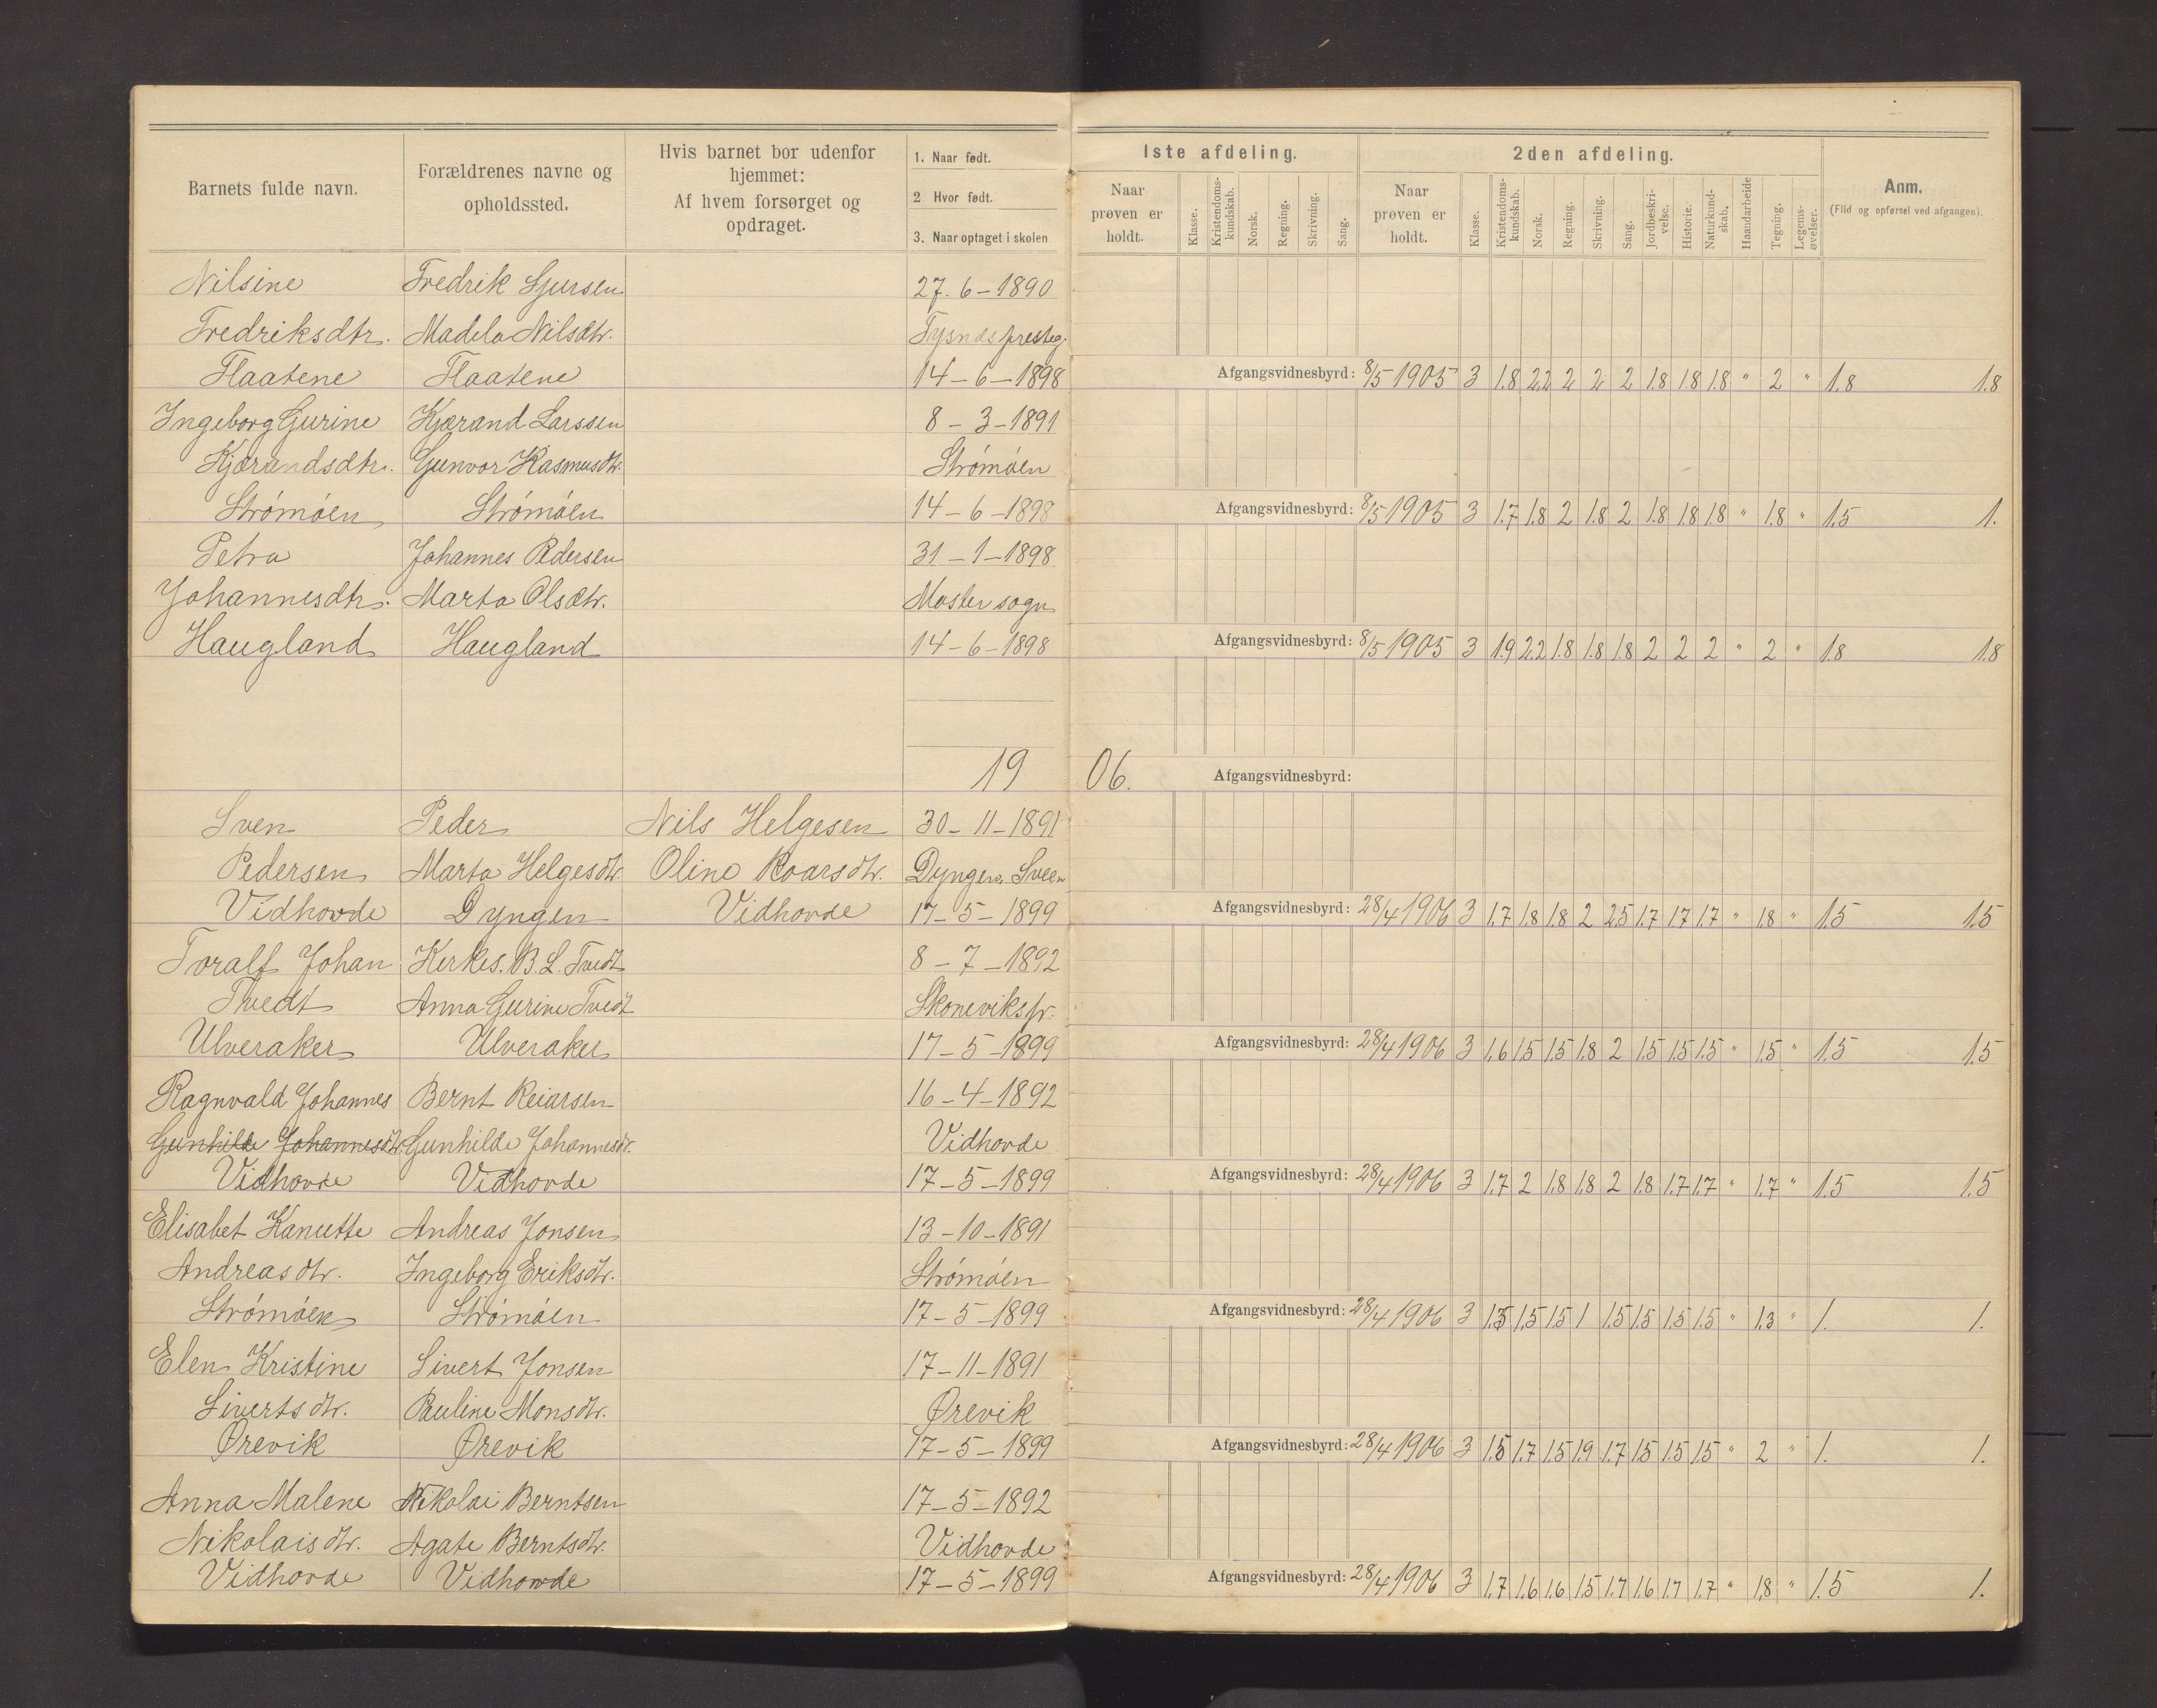 Barnets fulde navn. Forældrenes navne og opholdssted. Hvis barnet bor udenfor hjemmet: Af hvem forsørget og opdraget. 1. Naar født. 2 Hvor født. 3. Naar optaget i skolen
Iste afdeling. 2den afdeling. Anm. (Flid og opførsel ved afgangen).
Naar prøven er holdt. Klasse. Kristendomskundskab. Norsk. Regning. Skrivning. Sang. Naar prøven er holdt. Klasse. Kristendomskundskab. Norsk. Regning. Skrivning. Sang. Jordbeskrivelse. Historie. Naturkundskab. Haandarbeide Tegning. Legemsøvelser.
Nilsine Fredrik Sjursen 27. 6 - 1890
Fredriksdtr. Madela Nilsdtr. Tysnæs presteg.
Flaatene Flaatene 14 - 6 - 1898 Afgangsvidnesbyrd: 8/5 1905 3 1.8 2.2 2 2 2 1.8 1.8 1.8 " 2 " 1.8 1.8
Ingeborg Gurine Kjærand Larssen 8 - 3 - 1891
Kjærandsdtr. Gunvor Rasmusdtr. Strømøen
Strømøen Strømøen 14 - 6 - 1898 Afgangsvidnesbyrd: 8/5 1905 3 1.7 1.8 2 1.8 2 1.8 1.8 1.8 " 1.8 " 1.5 1.
Petra Johannes Pedersen 31 - 1 - 1898
Johannesdtr. Marta Olsdtr. Moster sogn
Haugland Haugland 14 - 6 - 1898 Afgangsvidnesbyrd: 8/5 1905 3 1.9 2.2 1.8 1.8 1.8 2 2 2 " 2 " 1.8 1.8
19 06. Afgangsvidnesbyrd:
Sven Peder Nils Helgesen 30 - 11 - 1891
Pedersen Marta Helgesdtr. Oline Roarsdtr. Dyngen, Sveen
Vidhovde Dyngen Vidhovde 17 - 5 - 1899 Afgangsvidnesbyrd: 28/4 1906 3 1.7 1.8 1.8 2 2.5 1.7 1.7 1.7 " 1.8 " 1.5 1.5
Toralf Johan Kirkes. B. L. Tvedt 8 - 7 - 1892
Tvedt Anna Gurine Tvedt Skonevikspr.
Ulveraker Ulveraker 17 - 5 - 1899 Afgangsvidnesbyrd: 28/4 1906 3 1.6 1.5 1.5 1.8 2 1.5 1.5 1.5 " 1.5 " 1.5 1.5
Ragnvald Johannes Bernt Reiarsen 16 - 4 - 1892
Gunhilde Johannesdtr. Gunhilde Johannesdtr. Vidhovde
Vidhovde Vidhovde 17 - 5 - 1899 Afgangsvidnesbyrd: 28/4 1906 3 1.7 2 1.8 1.8 2 1.8 1.7 1.7 " 1.7 " 1.5 1.5
Elisabet Kanutte Andreas Jonsen 13 - 10 - 1891
Andreasdtr. Ingeborg Eriksdtr. Strømøen
Strømøen Strømøen 17 - 5 - 1899 Afgangsvidnesbyrd: 28/4 1906 3 1.5 1.5 1.5 1 1.5 1.5 1.5 1.5 " 1.3 " 1. 1.
Elen Kristine Sivert Jonsen 17 - 11 - 1891
Sivertsdtr. Pauline Monsdtr. Ørevik
Ørevik Ørevik 17 - 5 - 1899 Afgangsvidnesbyrd: 28/4 1906 3 1.5 1.7 1.5 1.9 1.7 1.5 1.5 1.5 " 2 " 1. 1.
Anna Malene Nikolai Berntsen 17 - 5 - 1892
Nikolaisdtr. Agate Berntsdtr. Vidhovde
Vidhovde Vidhovde 17 - 5 - 1899 Afgangsvidnesbyrd: 28/4 1906 3 1.7 1.6 1.6 1.5 1.7 1.6 1.7 1.7 " 1.8 " 1.5 1.